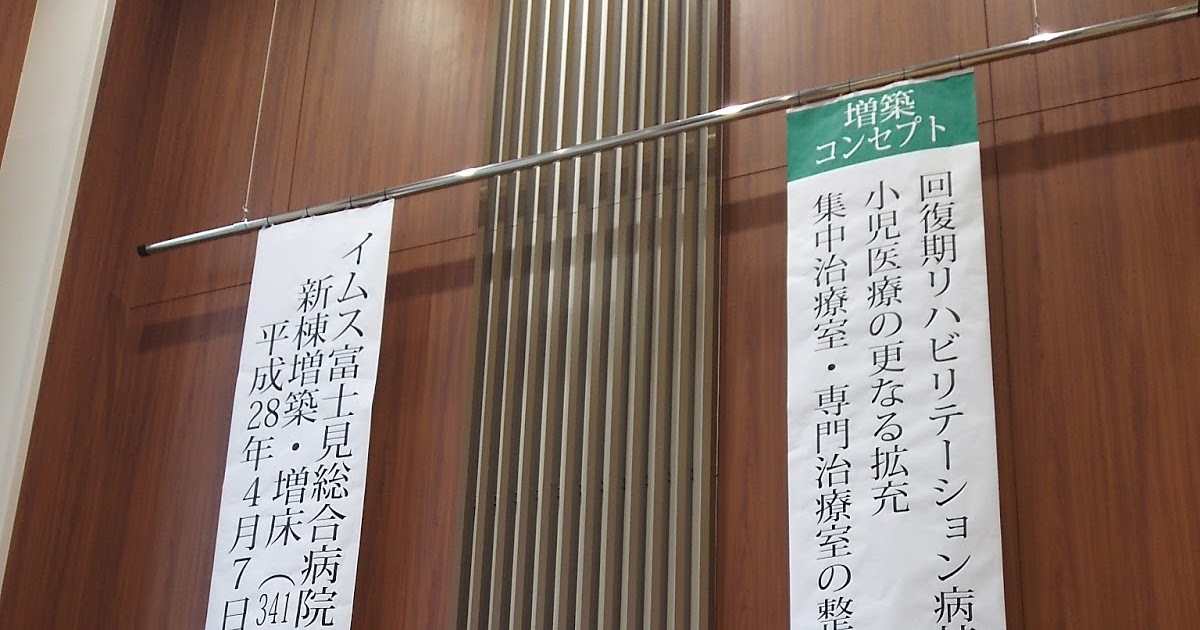 増築
コンセプト
回復期リハビリテーション病
小児医療の更なる拡充
集中治療室・専門治療室の整
イムス富士見総合病院
新棟増築・増床（341
平成28年4月7日